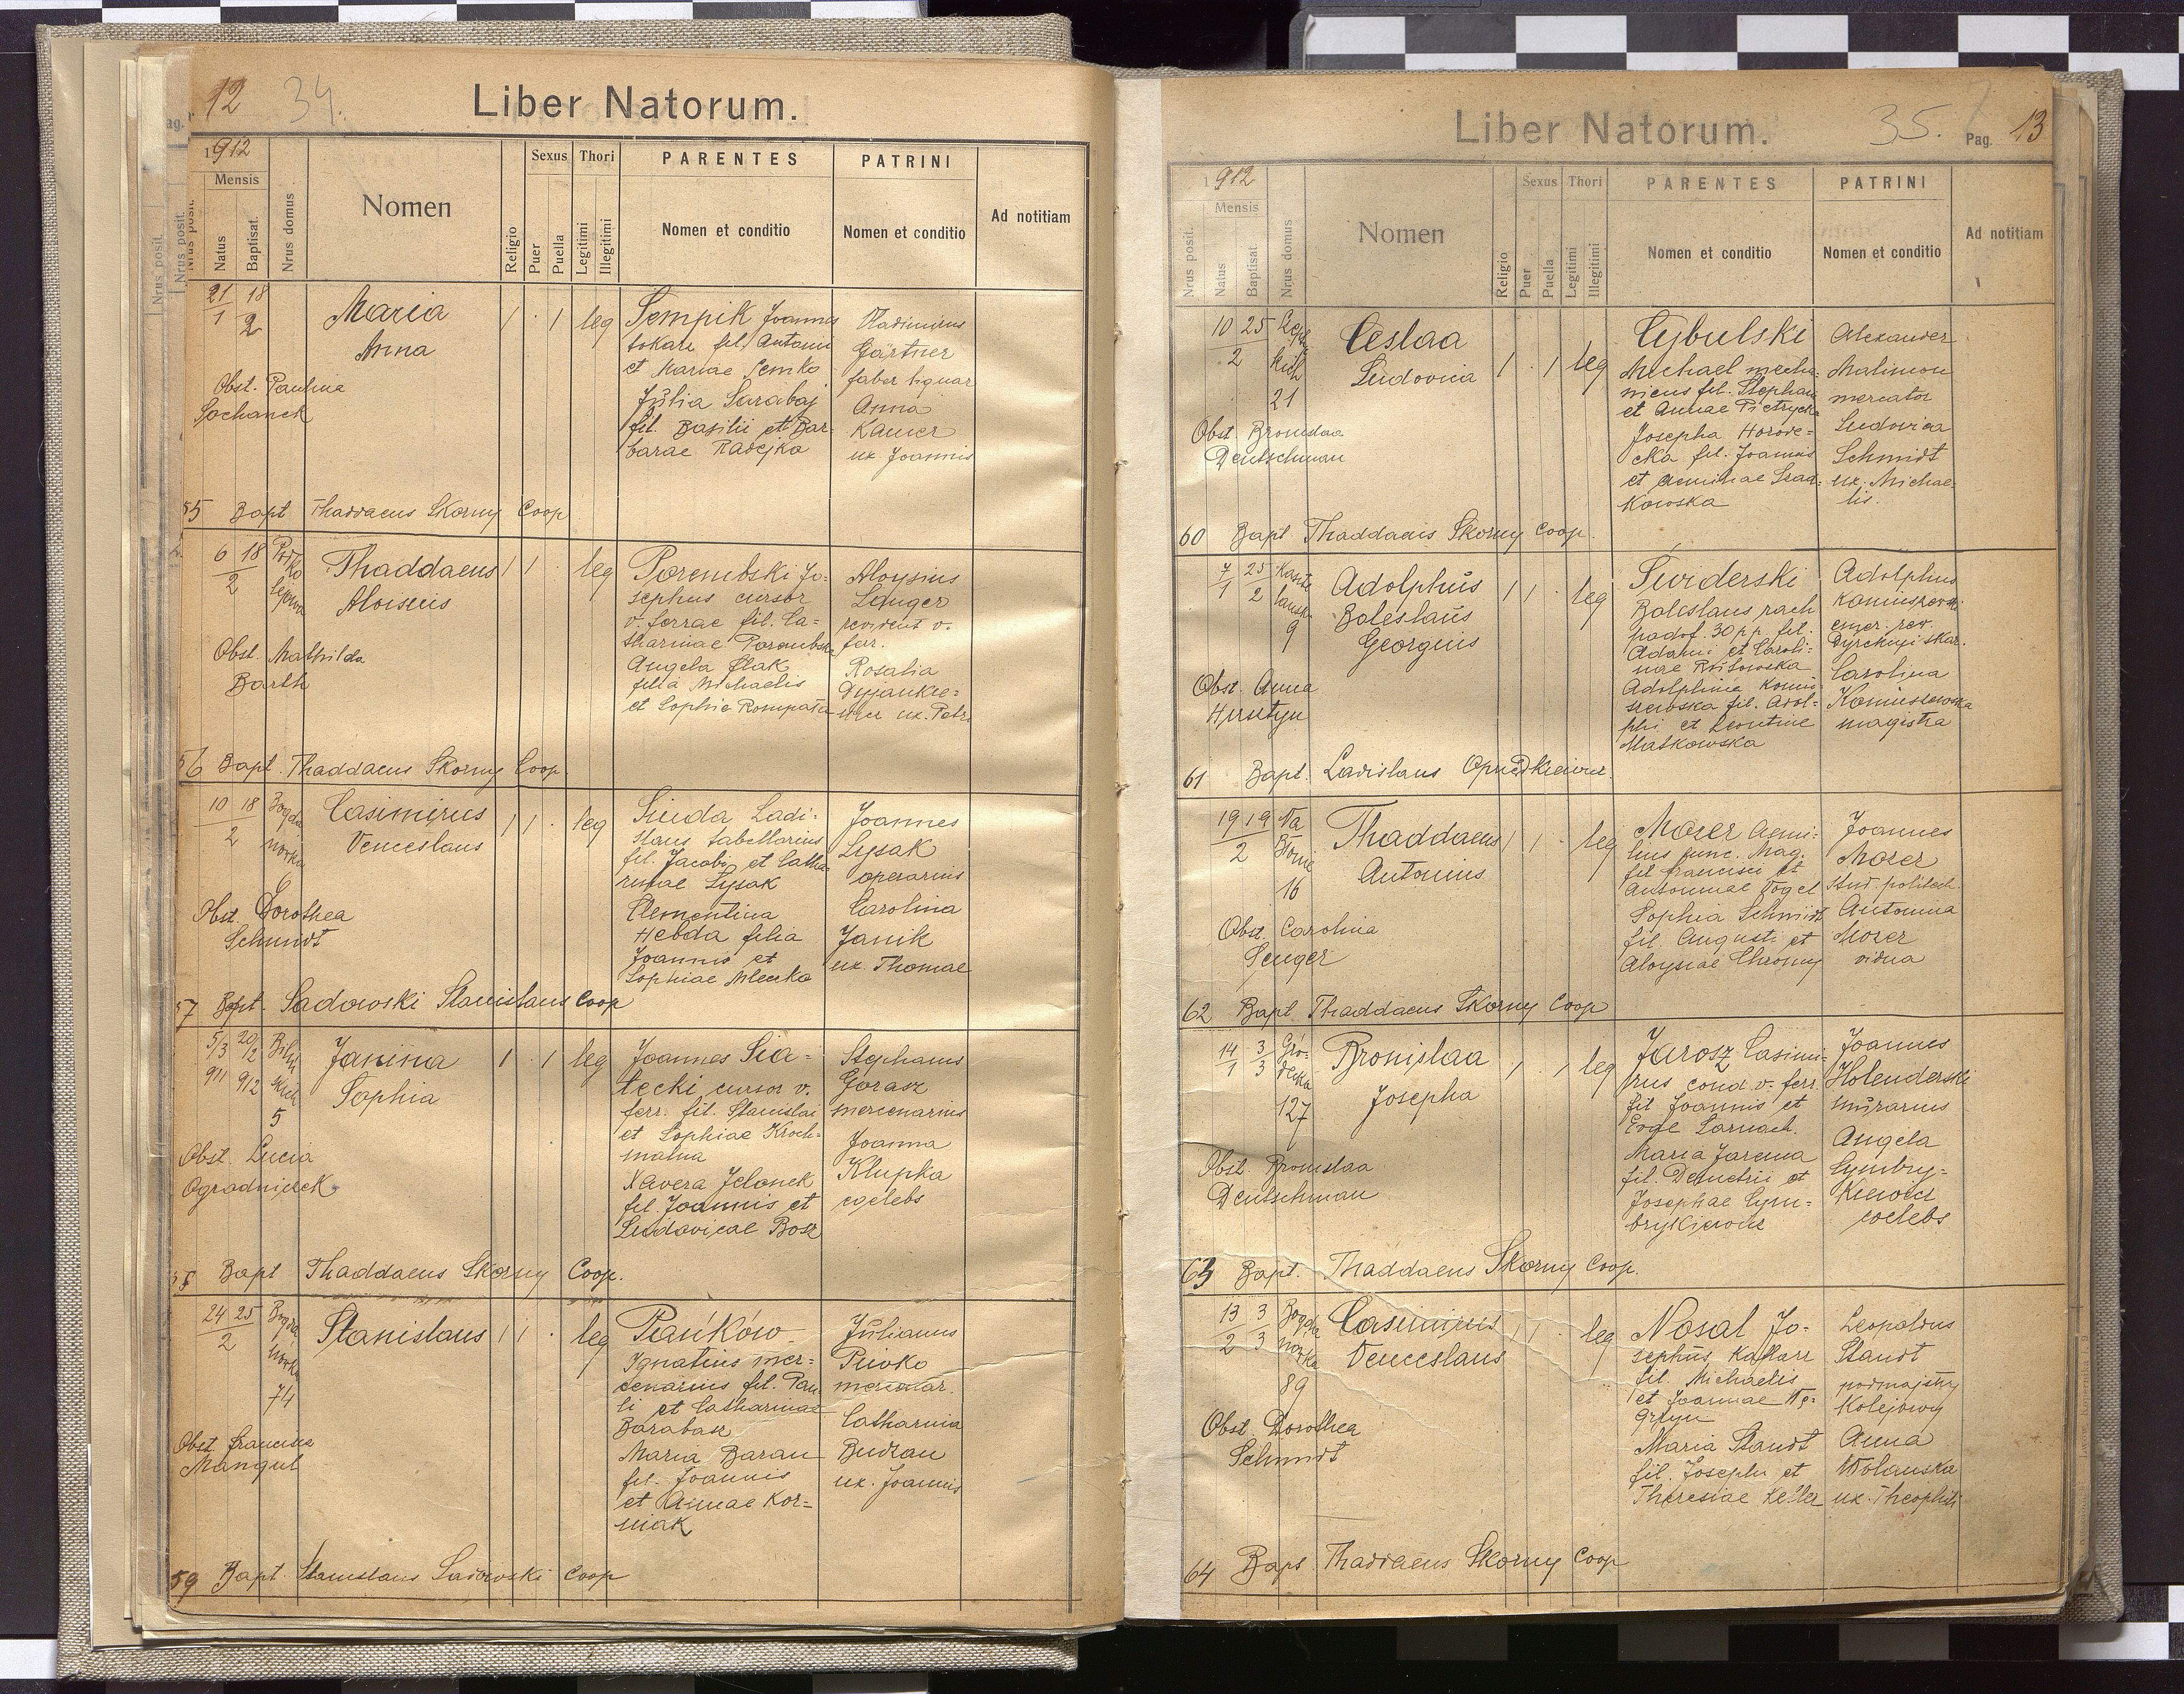 12 34.
Liber Natorum.
1912
Mensis
Nrus posit.
Natus
Baptisat.
Nrus domus
Nomen
Religio
Sexus
Puer
Puella
Thori
Legitimi
Illegitimi
PARENTES
Nomen et conditio
PATRINI
Nomen et conditio
Ad notitiam
21/1 18/2
Maria
Anna
1 · 1 leg
Sempik Joannes
tokarz fil. Antonii
et Mariae Semko
Julia Sarabaj
fil. Basilii et Bar-
barae Radejka
Vladimirus
Gärtner
faber lignar
Anna
Kamer
ux Joannis
Obst. Paulina
Sochanek
55 Bapt Thaddaeus Skorny Coop
6 18
2
Thaddaeus
Aloisius
1 1 · leg
Porembski Jo-
sephus cursor
v. ferrae fil. Ca-
tharinae Porembska
Angela Ślak
filia Michaelis
et Sophie
Aloysius
Lenger
revident v.
fer.
Rosalia
ux. Petri
Obst. Mathilda
Barth
56 Bapt. Thaddaeus Skorny Coop.
10 18
2
Bogda
nowka
Casimirus
Venceslaus
1 1 · leg
Siuda Ladi-
slaus tabellarius
fil. Jacobi et Catha-
rinae Lysak
Clementina
Hebda filia
Joannis et
Sophiae Mleczko
Joannes
Lysak
operarius
Carolina
Janik
ux. Thomae
Obst. Dorothea
Schmidt
57 Bapt. Sadowski Stanislaus Coop
5/3 20/2
911 912
5
Janina
Sophia
1 · 1 leg
Joannes Sia-
tecki cursor v.
ferr. fil. Stanislai
et Sophiae Kroch-
malna
Xavera Jelonek
fil. Joannis et
Ludovicae Bosz
Stephanus
Gorasz
mercenarius
Joanna
Klupka
coelebs
Obst. Lucia
Ogradniczek
58 Bapt Thaddaeus Skorny Coop.
24 25
2
Bogda
nowka
74
Stanislaus
1 1 · leg
Pańków
Ignatius mer-
cenarius fil. Pau
li et Catharinae
Barabasz
Maria Baran
fil. Joannis
et Annae Kor-
niak
Julianus
Piwko
mercenar.
Catharina
Budzan
ux. Joannis
Obst. Francisca
Mangul
59 Bapt. Stanislaus Sadowski Coop
Liber Natorum.
35. Pag. 13
1912
Mensis
Nrus posit.
Natus
Baptisat.
Nrus domus
Nomen
Religio
Sexus
Puer
Puella
Thori
Legitimi
Illegitimi
PARENTES
Nomen et conditio
PATRINI
Nomen et conditio
Ad notitiam
10 25
2
21
Ceslaa
Ludovica
1 · 1 leg
Cybulski
Michael mecha-
nicus fil. Stephani
et Annae Pietrycka
Josepha Horode-
cka fil. Joannis
et
kowska
Alexander
Malimon
mercator
Ludovica
Schmidt
ux. Michae-
lis.
Obst. Bronislaa
Deutschman
60 Bapt Thaddaeus Skorny Coop.
7 25
1 2
9
Adolphus
Boleslaus
Georgius
1 1 · leg
Swiderski
Boleslaus rach
podof. 30 p p. fil.
Adami et Caroli-
nae
Adolphine Komu-
szewska fil. Adol-
phi et Leontine
Matkowska
Adolphus
emer. rew.
Dyrekcyi skar.
Carolina
magistra
Obst. Anna
61 Bapt. Ladislaus
19 19
2
Na
Błonie
16
Thaddaeus
Antonius
1 1 · leg
Mozer Aemi-
lius func. Mag.
fil Francisci et
Antoninae Vogel
Sophia Schmidt
fil. Augusti et
Aloysiae Chromy
Joannes
Mozer
stud. politech.
Antonina
Mozer
vidua
Obst. Carolina
Senger
62 Bapt Thaddaeus Skorny Coop
14 3
1 3
Gró-
decka
127
Bronislaa
Josepha
1 · 1 leg
Jarosz Casimi-
rus cond v. ferr.
fil Joannis et
Evae Sarnach.
Maria Jarema
fil. Demetrii et
Josephae Cym-
brykiewicz
Joannes
Holenderski
murarius
Angela
Cymbry-
kiewicz
coelebs
Obst. Bronislaa
Deutschman
63 Bapt. Thaddaeus Skorny Coop.
13 3
2 3
Bogda
nowka
89
Casimirus
Venceslaus
1 1 · leg
Nosal Jo-
sephus kaflarz
fil. Michaelis
et Joannae Wę-
grzyn
Maria Standt
fil. Josephi et
Theresiae Keller
Leopoldus
Standt
podmajstrzy
Kolejowy
Anna
Wolanska
ux. Theophili
Obst. Dorothea
Schmidt
64 Baps Thaddaeus Skorny Coop